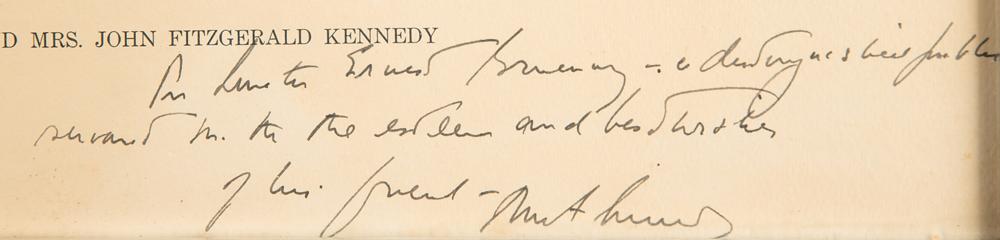 D MRS. JOHN FITZGERALD KENNEDY
For Senator Ernest Gruening - a distinguished public
servant with the esteem and best wishes
of his friend -